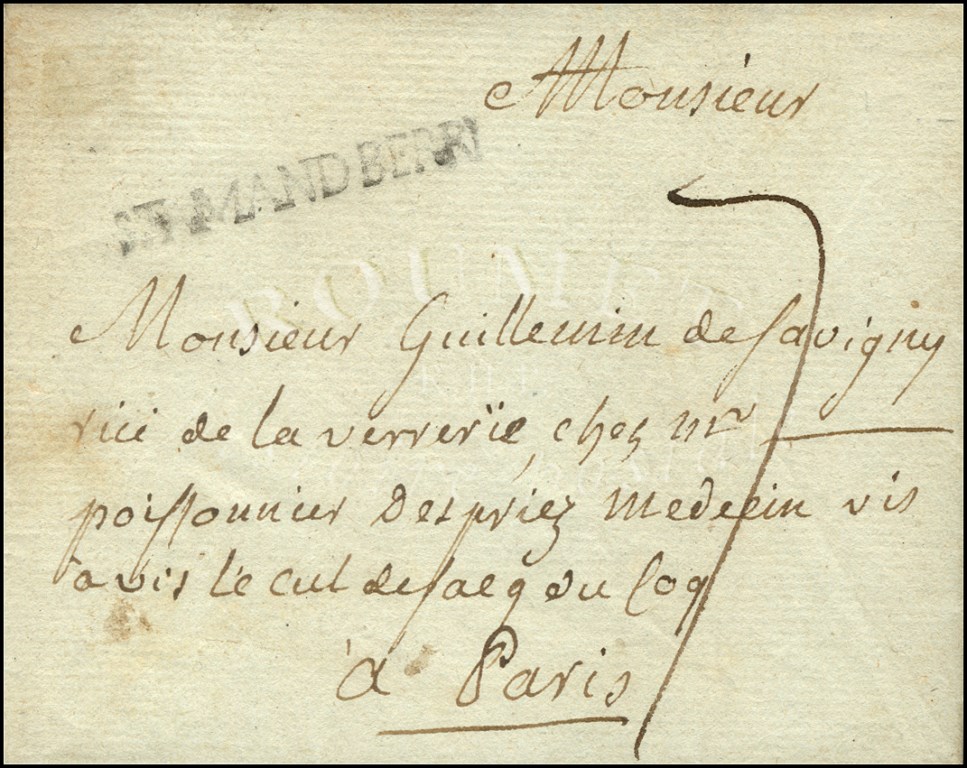 Monsieur
ST AMAND BERRI
7
ROUMET
Monsieur Guillemin de Savigny
rüe de la verrerïe, chez mr
poissonnier Despriez medecin vis
a vis le cul de sacq du Coq
à Paris